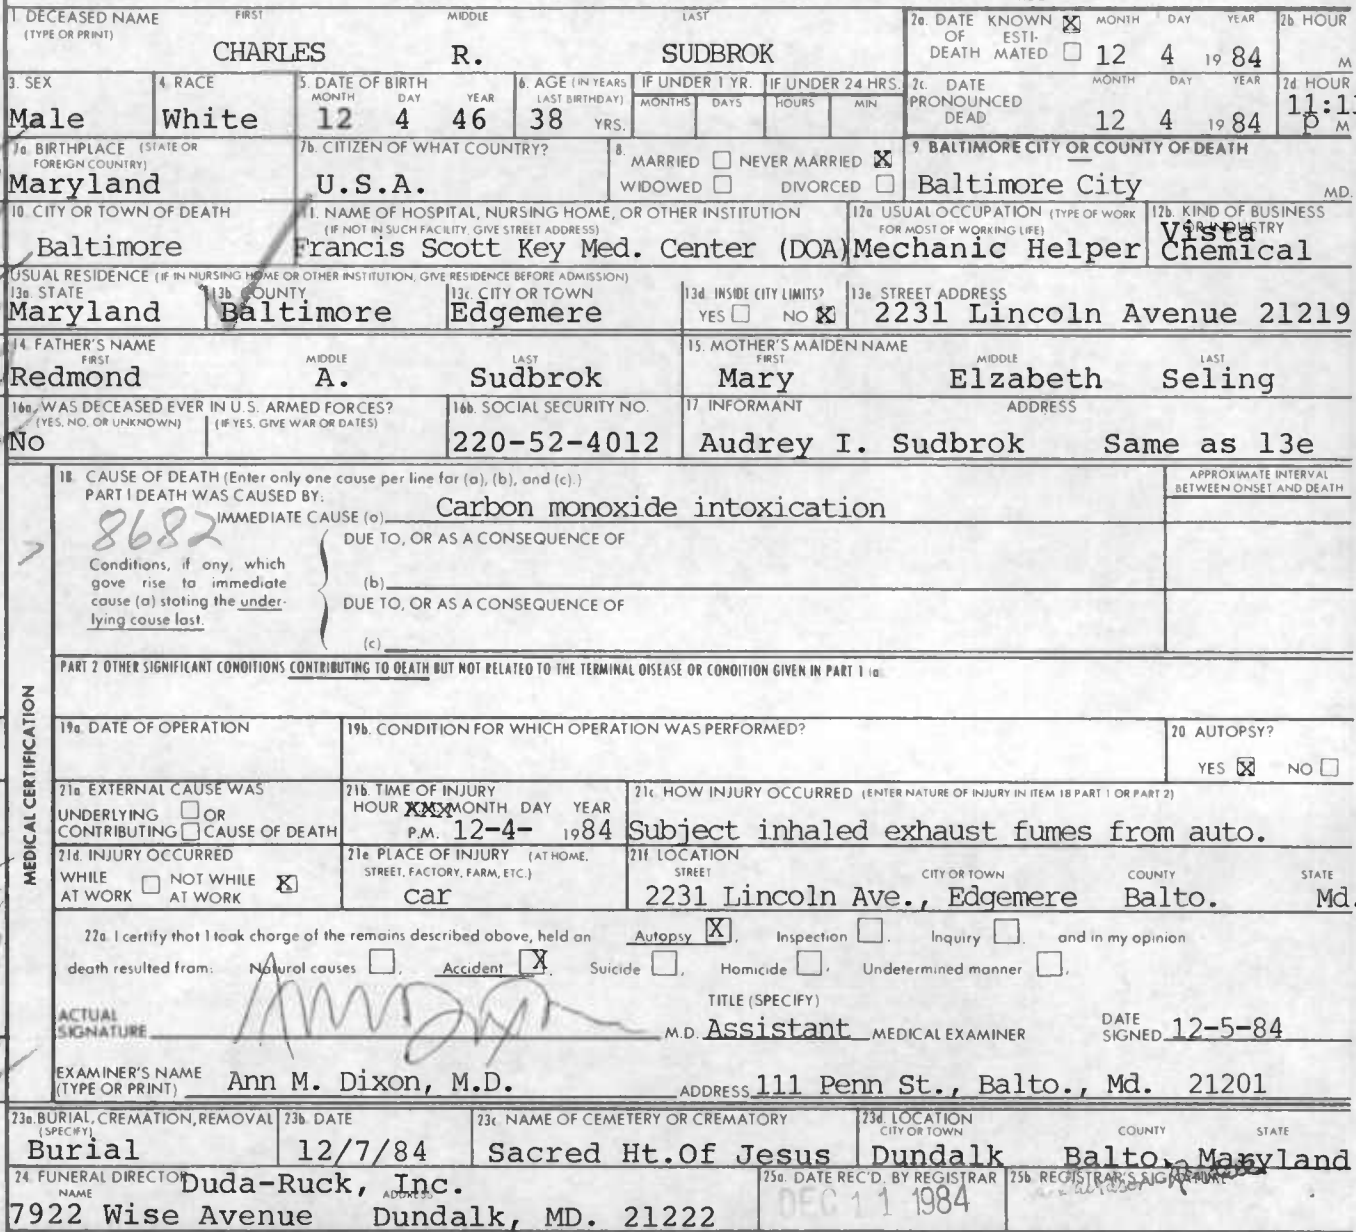 1 DECEASED NAME (TYPE OR PRINT) FIRST MIDDLE LAST
CHARLES R. SUDBROK
2a. DATE OF DEATH KNOWN X ESTIMATED MONTH DAY YEAR
12 4 1984
2b. HOUR M
3. SEX
Male
4 RACE
White
5. DATE OF BIRTH MONTH DAY YEAR
12 4 46
6. AGE (IN YEARS LAST BIRTHDAY)
38 YRS.
IF UNDER 1 YR. MONTHS DAYS
IF UNDER 24 HRS. HOURS MIN
2c. DATE PRONOUNCED DEAD MONTH DAY YEAR
12 4 1984
2d HOUR
P M
7a. BIRTHPLACE (STATE OR FOREIGN COUNTRY)
Maryland
7b. CITIZEN OF WHAT COUNTRY?
U.S.A.
8. MARRIED NEVER MARRIED X
WIDOWED DIVORCED
9 BALTIMORE CITY OR COUNTY OF DEATH
Baltimore City MD.
10. CITY OR TOWN OF DEATH
Baltimore
11. NAME OF HOSPITAL, NURSING HOME, OR OTHER INSTITUTION
(IF NOT IN SUCH FACILITY, GIVE STREET ADDRESS)
Francis Scott Key Med. Center (DOA)
12a USUAL OCCUPATION (TYPE OF WORK FOR MOST OF WORKING LIFE)
Mechanic Helper
12b. KIND OF BUSINESS OR INDUSTRY
Vista Chemical
USUAL RESIDENCE (IF IN NURSING HOME OR OTHER INSTITUTION, GIVE RESIDENCE BEFORE ADMISSION)
13a. STATE
Maryland
13b COUNTY
Baltimore
13c. CITY OR TOWN
Edgemere
13d. INSIDE CITY LIMITS?
YES NO X
13e STREET ADDRESS
2231 Lincoln Avenue 21219
14. FATHER'S NAME FIRST MIDDLE LAST
Redmond A. Sudbrok
15. MOTHER'S MAIDEN NAME FIRST MIDDLE LAST
Mary Elzabeth Seling
16a. WAS DECEASED EVER IN U.S. ARMED FORCES?
(YES, NO, OR UNKNOWN) (IF YES, GIVE WAR OR DATES)
No
16b. SOCIAL SECURITY NO.
220-52-4012
17 INFORMANT ADDRESS
Audrey I. Sudbrok Same as 13e
MEDICAL CERTIFICATION
18 CAUSE OF DEATH (Enter only one cause per line for (a), (b), and (c).)
PART I DEATH WAS CAUSED BY:
IMMEDIATE CAUSE (a) Carbon monoxide intoxication
APPROXIMATE INTERVAL BETWEEN ONSET AND DEATH
8682
DUE TO, OR AS A CONSEQUENCE OF
Conditions, if any, which
gave rise to immediate
cause (a) stating the under-
lying cause last.
(b)
DUE TO, OR AS A CONSEQUENCE OF
(c)
PART 2 OTHER SIGNIFICANT CONDITIONS CONTRIBUTING TO DEATH BUT NOT RELATED TO THE TERMINAL DISEASE OR CONDITION GIVEN IN PART 1 (a)
19a. DATE OF OPERATION
19b. CONDITION FOR WHICH OPERATION WAS PERFORMED?
20 AUTOPSY?
YES X NO
21a EXTERNAL CAUSE WAS
UNDERLYING OR
CONTRIBUTING CAUSE OF DEATH
21b. TIME OF INJURY
HOUR XXX MONTH DAY YEAR
P.M. 12-4- 1984
21c HOW INJURY OCCURRED (ENTER NATURE OF INJURY IN ITEM 18 PART 1 OR PART 2)
Subject inhaled exhaust fumes from auto.
21d. INJURY OCCURRED
WHILE AT WORK NOT WHILE AT WORK X
21e PLACE OF INJURY (AT HOME, STREET, FACTORY, FARM, ETC.)
car
21f LOCATION
STREET CITY OR TOWN COUNTY STATE
2231 Lincoln Ave., Edgemere Balto. Md.
22a. I certify that I took charge of the remains described above, held an Autopsy X, Inspection, Inquiry, and in my opinion
death resulted from: Natural causes, Accident X, Suicide, Homicide, Undetermined manner,
ACTUAL SIGNATURE M.D.
TITLE (SPECIFY)
Assistant MEDICAL EXAMINER
DATE SIGNED 12-5-84
EXAMINER'S NAME (TYPE OR PRINT) Ann M. Dixon, M.D.
ADDRESS 111 Penn St., Balto., Md. 21201
23a. BURIAL, CREMATION, REMOVAL (SPECIFY)
Burial
23b. DATE
12/7/84
23c NAME OF CEMETERY OR CREMATORY
Sacred Ht.Of Jesus
23d. LOCATION CITY OR TOWN COUNTY STATE
Dundalk Balto. Maryland
24 FUNERAL DIRECTOR NAME ADDRESS
Duda-Ruck, Inc.
7922 Wise Avenue Dundalk, MD. 21222
25a. DATE REC'D. BY REGISTRAR
DEC 11 1984
25b REGISTRAR'S SIGNATURE